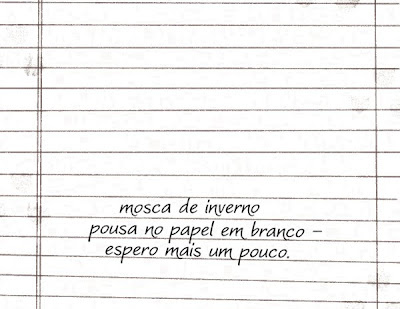 mosca de inverno
pousa no papel em branco –
espero mais um pouco.